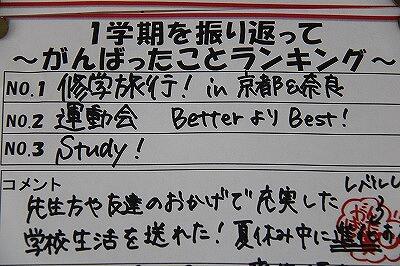 1学期を振り返って
～がんばったことランキング～
NO.1 修学旅行! in 京都&奈良
NO.2 運動会 BetterよりBest!
NO.3 Study!
コメント
先生方や友達のおかげで充実した
学校生活を送れた!夏休み中に進化